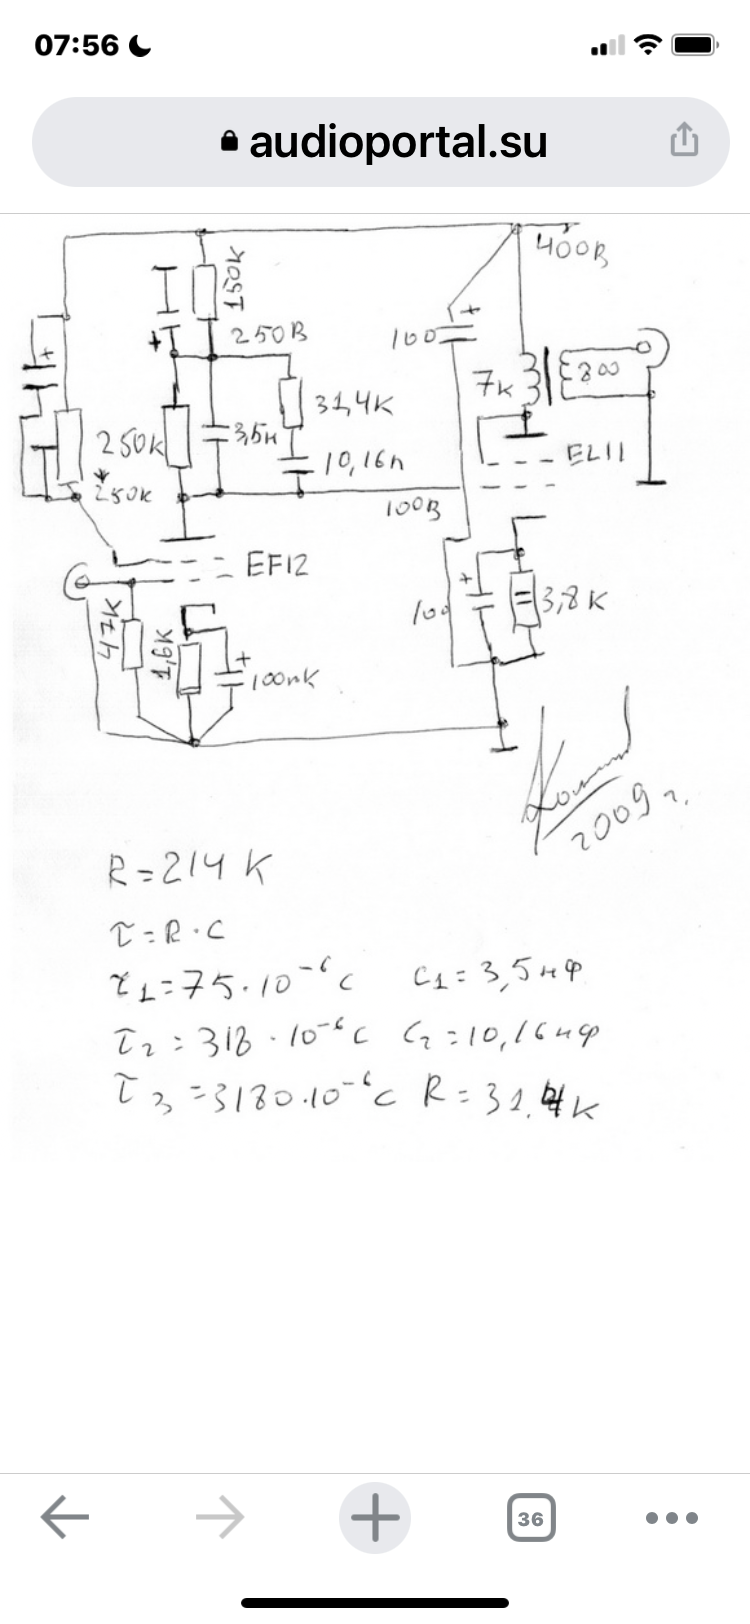 07:56
audioportal.su
400В
150К
+
250В
+
100
+
7к
800
31,4К
250К
3,5н
10,16п
EL11
250К
100В
EF12
+
100
3,8К
47К
1,6К
+
100мК
2009 г.
R=214 К
τ=R·C
τ1=75·10⁻⁶с C1=3,5нф
τ2=318·10⁻⁶с C2=10,16нф
τ3=3180·10⁻⁶с R=31,4К
36